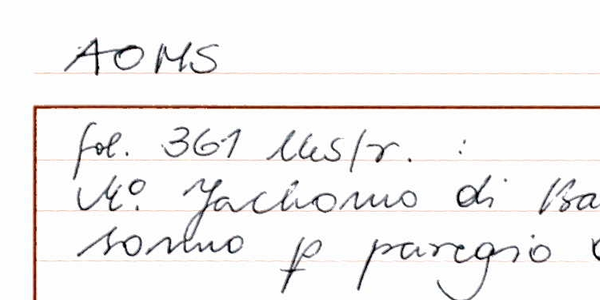 AOMS
fol. 361 lks/r. :
Mº. Jachomo di Ba
sonno p paregio